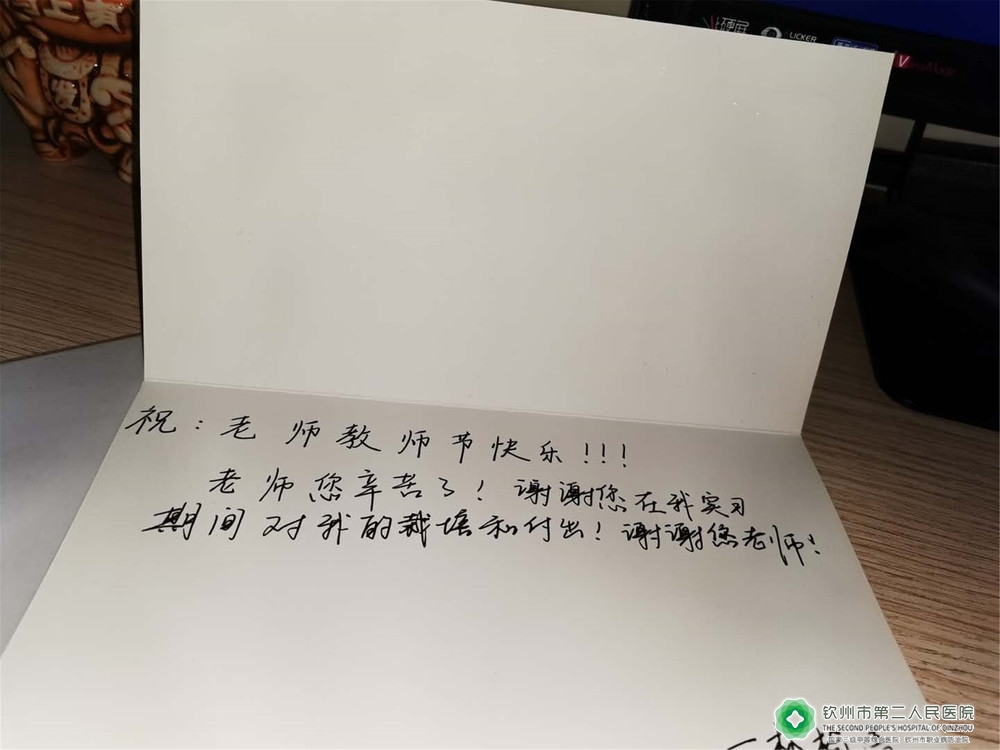 硬展
LICKER
祝：老师教师节快乐!!!
老师您辛苦了！谢谢您在我实习
期间对我的栽培和付出！谢谢您老师！
钦州市第二人民医院
THE SECOND PEOPLE'S HOSPITAL OF QINZHOU